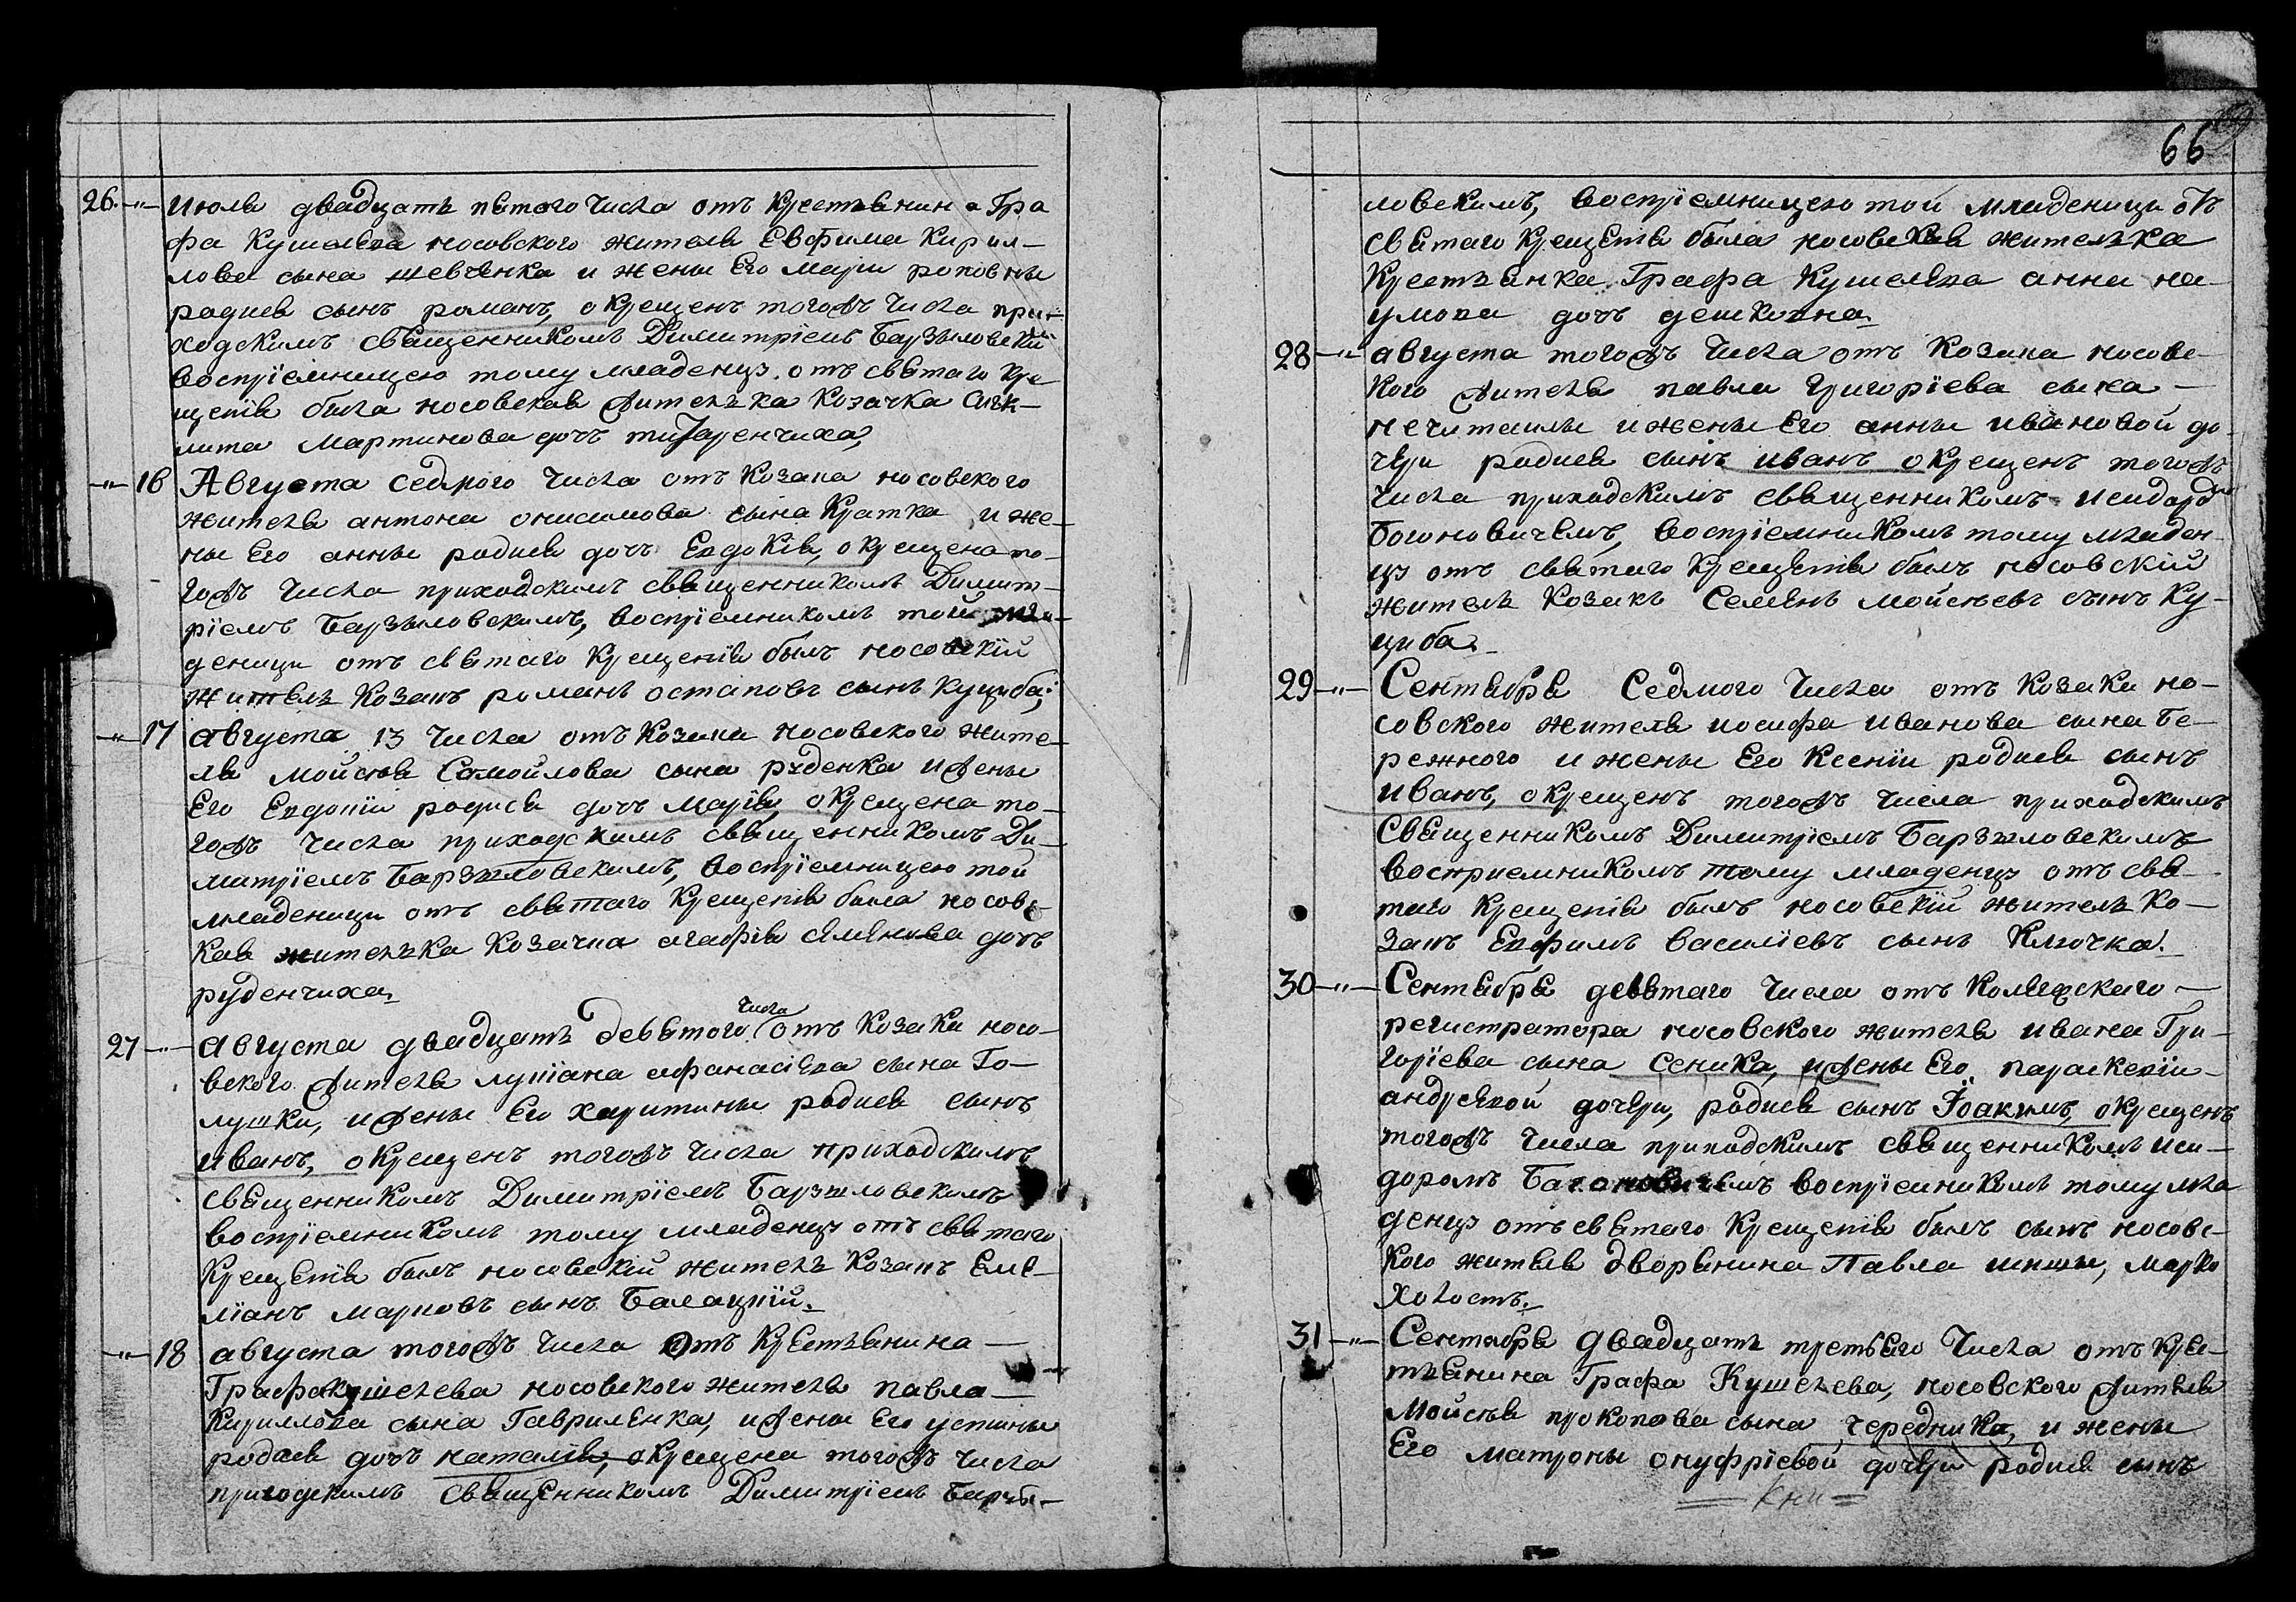 26. июля двадцать пятого числа отъ крестьянина Гра
фа Кушелева носовского жителя Евфима Кирил-
лова сына шевченка и жены его маріи
родися сынъ романъ, окрещенъ тогожъ числа при-
ходскимъ священникомъ Димитріемъ Барзыловскимъ
воспріемницею тому младенцу отъ святаго кре
щенія была носовская жителька козачка
Мартинова дочь
16 Августа седмого числа отъ козака носовского
жителя антона онисимова сына Кратка и же-
ны его анны родися дочь Евдокія, окрещена то-
гожъ числа приходскимъ священникомъ Димит-
ріемъ Барзыловскимъ, воспріемникомъ той мла-
деници отъ святаго крещенія былъ носовскій
житель козакъ романъ остаповъ сынъ куцыба;
17 августа 13 числа отъ козака носовского жите-
ля мойсея Самойлова сына руденка и жены
его Евдокіи родися дочь марія, окрещена то-
гожъ числа приходскимъ священникомъ Ди-
митріемъ Барзыловскимъ, воспріемницею той
младеници отъ святаго крещенія была носовс-
кая жителька козачка агафія семенова дочь
руденчиха
27 августа двадцать девятого числа отъ козака носо-
вского жителя лукіана афанасіева сына Го-
лушки, и жены его харитины родися сынъ
иванъ, окрещенъ тогожъ числа приходскимъ
священникомъ Димитріемъ Барзыловскимъ
воспріемникомъ тому младенцу отъ святаго
крещенія былъ носовскій житель козакъ Еме-
ліанъ марковъ сынъ Балацкій.
18 августа тогожъ числа отъ крестьянина
Графа Кушелева носовского жителя павла
Кириллова сына Гавриленка, и жены его устины
родися дочь наталія, окрещена тогожъ числа
приходскимъ священникомъ Димитріемъ Барзы-
66
ловскимъ, воспріемницею той младеници отъ
святаго крещенія была носовская жителька
крестьянка Графа Кушелева анна на-
умова дочь дешковна
28 августа тогожъ числа отъ козака носовс-
кого жителя павла григоріева сына
нечитайлы и жены его анны ивановой до-
чери родися сынъ иванъ окрещенъ тогожъ
числа приходскимъ священникомъ исидоромъ
Богоновичемъ, воспріемникомъ тому младен-
цу отъ святаго крещенія былъ носовскій
житель козакъ Семенъ мойсеевъ сынъ ку-
цыба.
29 Сентября Седмого числа отъ козака но-
совского жителя иосифа иванова сына Бе-
режного и жены его Ксеніи родися сынъ
иванъ, окрещенъ тогожъ числа приходскимъ
священникомъ Димитріемъ Барзыловскимъ
восприемникомъ тому младенцу отъ свя-
таго крещенія былъ носовскій житель ко-
закъ Евфимъ василіевъ сынъ Клочка.
30 Сентября девятаго числа отъ колежскаго
регистратора носовского жителя ивана Гри-
горіева сына сеника, и жены его параскевіи
андреевой дочери, родися сынъ Іоакимъ, окрещенъ
тогожъ числа приходскимъ священникомъ иси-
доромъ Багоновичемъ воспріемникомъ тому мла
денцу отъ святаго крещенія былъ сынъ носовс-
кого жителя дворянина Павла шкшы, марко
холостъ.
31 Сентября двадцать третьего числа отъ крес-
тьянина Графа Кушелева, носовского жителя
мойсея прокопова сына чередника, и жены
его матроны онуфріевой дочери родися сынъ